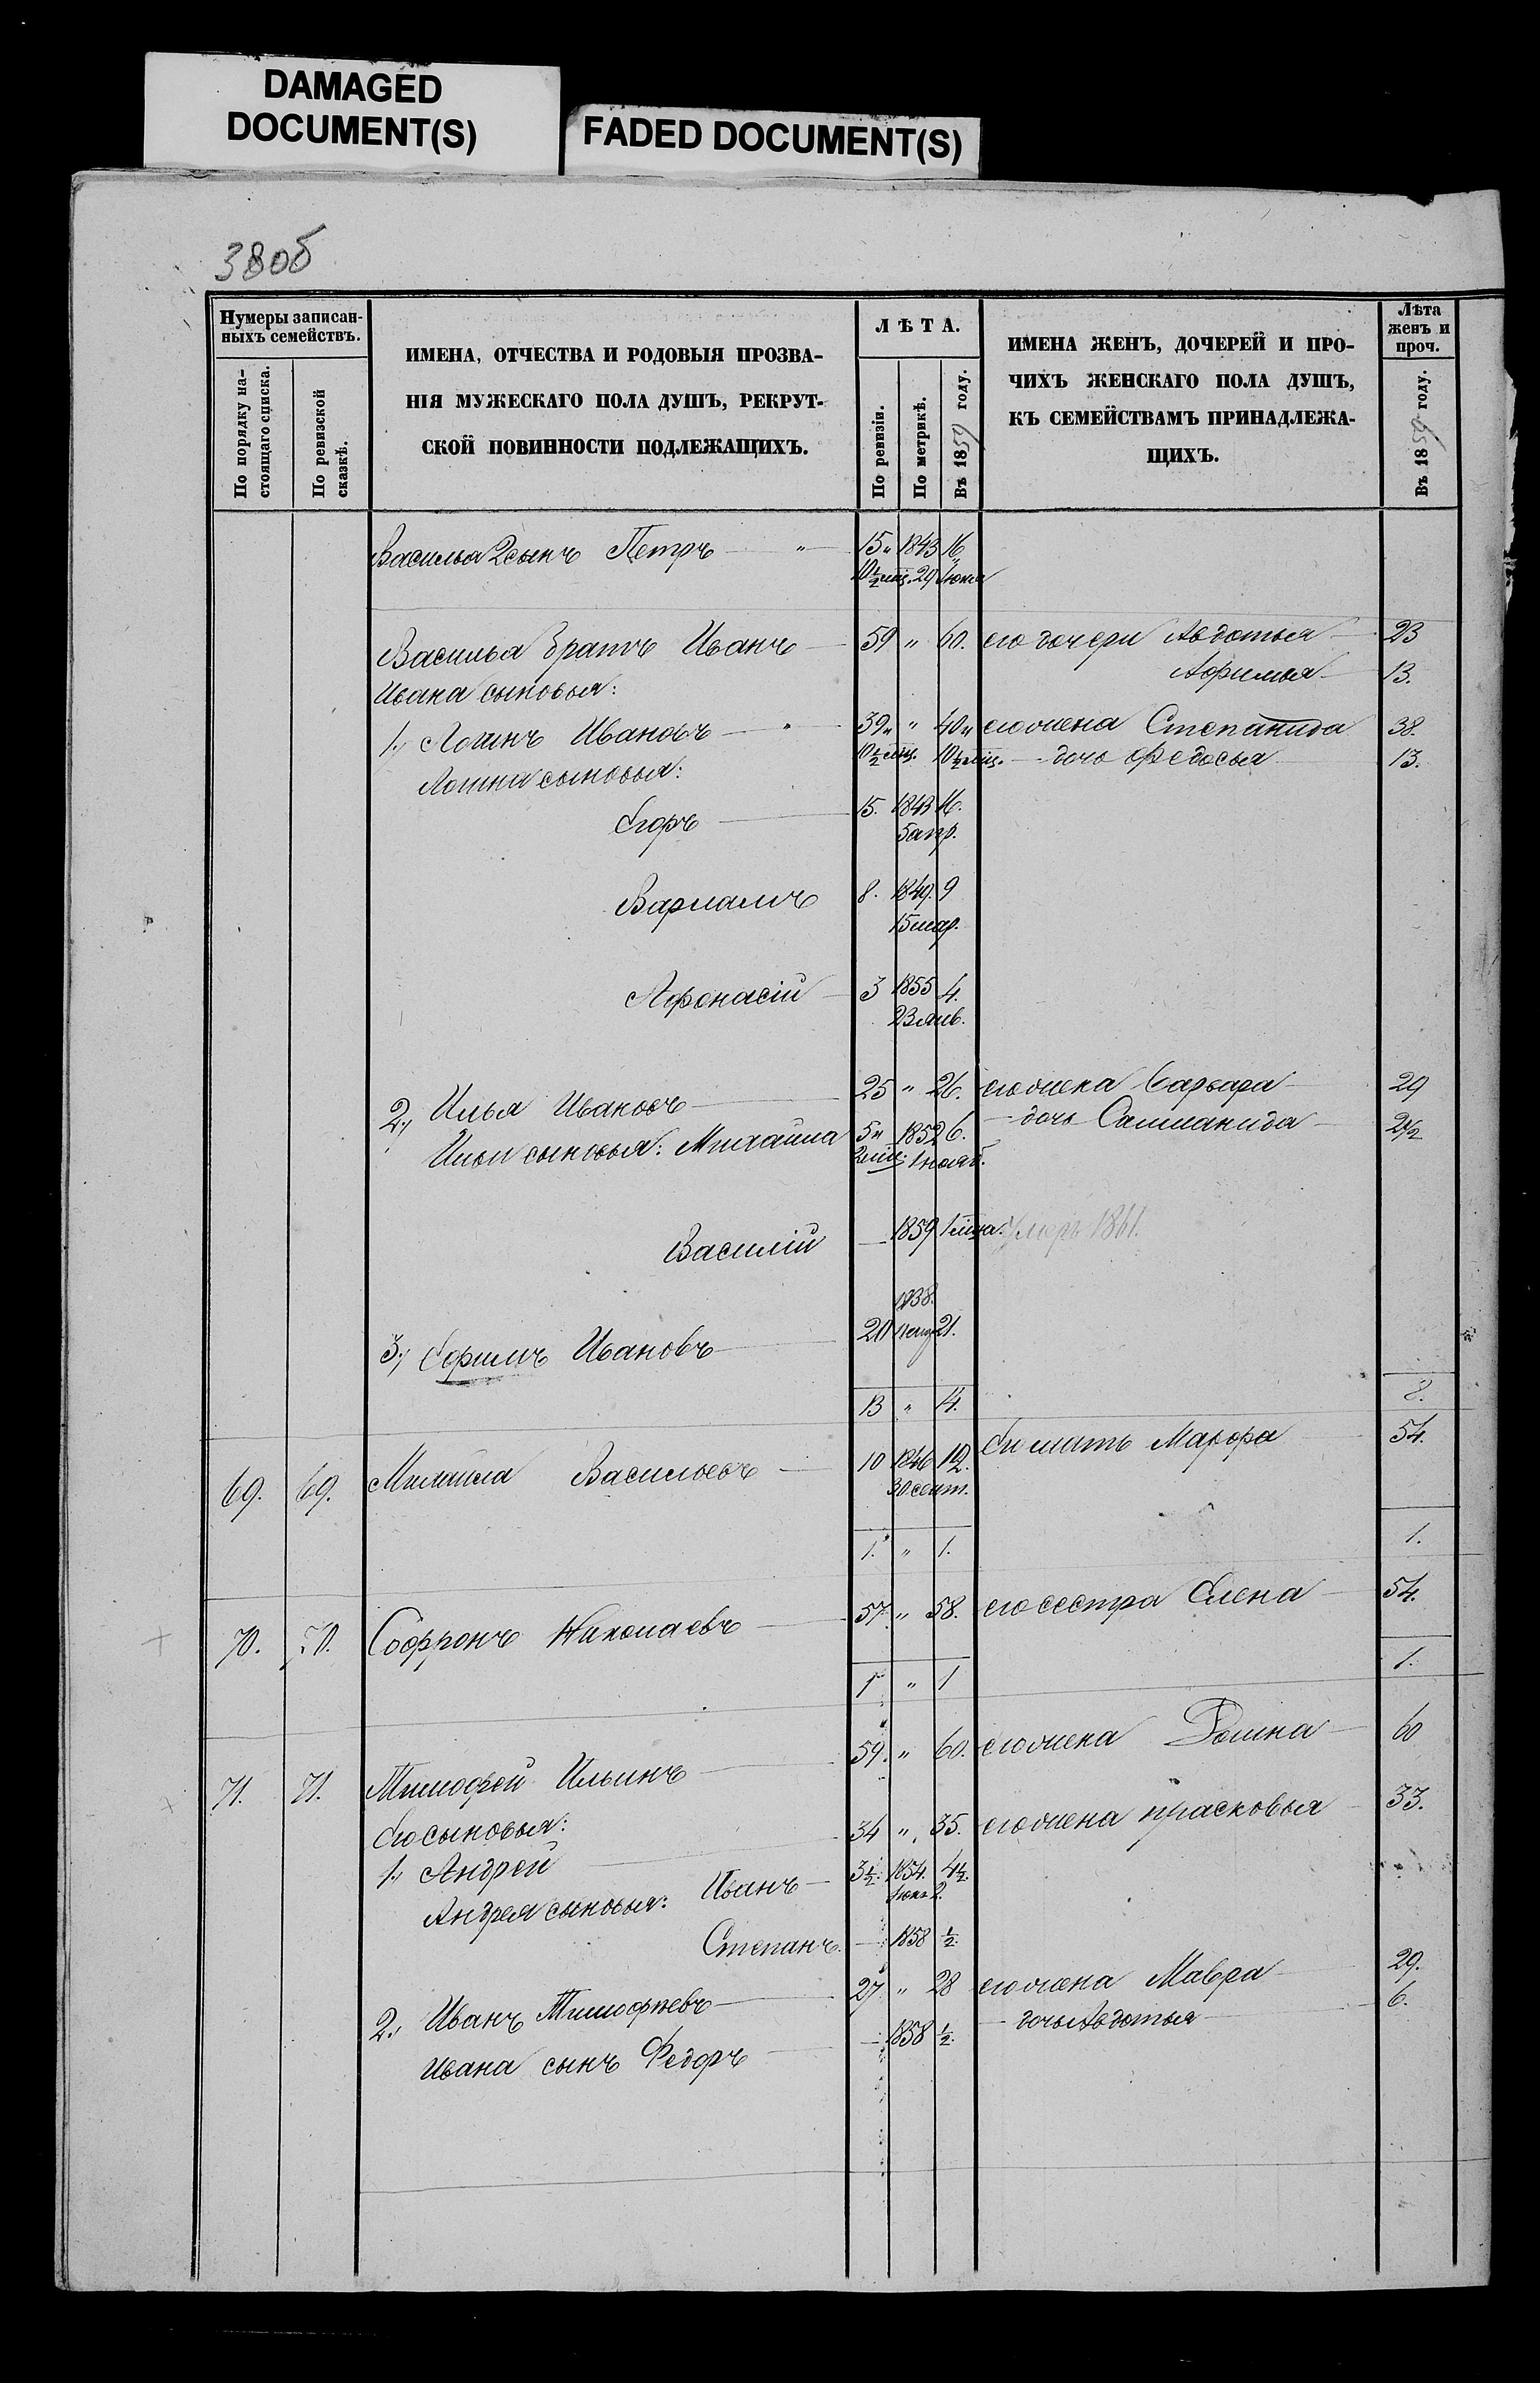 DAMAGED
DOCUMENT(S)
FADED DOCUMENT(S)
38об
Нумеры записан-
ныхъ семействъ.
По порядку на-
стоящаго списка.
По ревизской
сказкѣ.
ИМЕНА, ОТЧЕСТВА И РОДОВЫЯ ПРОЗВА-
НІЯ МУЖЕСКАГО ПОЛА ДУШЪ, РЕКРУТ-
СКОЙ ПОВИННОСТИ ПОДЛЕЖАЩИХЪ.
ЛѢТА.
По ревизіи.
По метрикѣ.
Въ 1859 году.
ИМЕНА ЖЕНЪ, ДОЧЕРЕЙ И ПРО-
ЧИХЪ ЖЕНСКАГО ПОЛА ДУШЪ,
КЪ СЕМЕЙСТВАМЪ ПРИНАДЛЕЖА-
ЩИХЪ.
Лѣта
женъ и
проч.
Въ 1859 году.
Василья 2 сынъ Петръ — " — 15 " 1843 16 "
10½ мц. 29 іюня
Василья братъ Иванъ — 59 " 60. его дочери Авдотья — 23
Афимья — 13.
Ивана сыновья:
1., Логинъ Ивановъ — " — 39 " " 40 " его жена Степанида 38.
10½ мц. 10½ мц. — дочь Федосья 13.
Логина сыновья:
Егоръ — 15. 1843 16.
5 апр.
Варламъ 8. 1849. 9
15 мар.
Афонасій — 3 1855 4.
23 янв.
2., Илья Ивановъ — 25 " 26. его жена Варвара — 29
Ильи сыновья: Михаила 5 " 1852 6. — дочь Саломанида — 2½
2 мц. 1 нояб.
Василій — 1859 1 мца. умеръ 1861.
1838.
3., Ефимъ Ивановъ — 20 21.
13 " 14. 8.
69. 69. Михаила Васильевъ — 10 1846 12. Его мать Марфа — 54.
30 сент.
1. " 1. 1.
70. 70. Софронъ Николаевъ — 57. " 58. его сестра Елена — 54.
1 " 1 1.
71. 71. Тимофей Ильинъ — 59. " 60. его жена Домна — 60
Его сыновья:
1., Андрей — 34 " 35. его жена Прасковья — 33.
Андрея сыновья: Иванъ — 3½. 1854. 4½.
іюня 2.
Степанъ. — 1858 ½.
2., Иванъ Тимофѣевъ — 27 " 28 его жена Мавра — 29.
— дочь Авдотья — 6.
Ивана сынъ Федоръ — — 1858 ½.